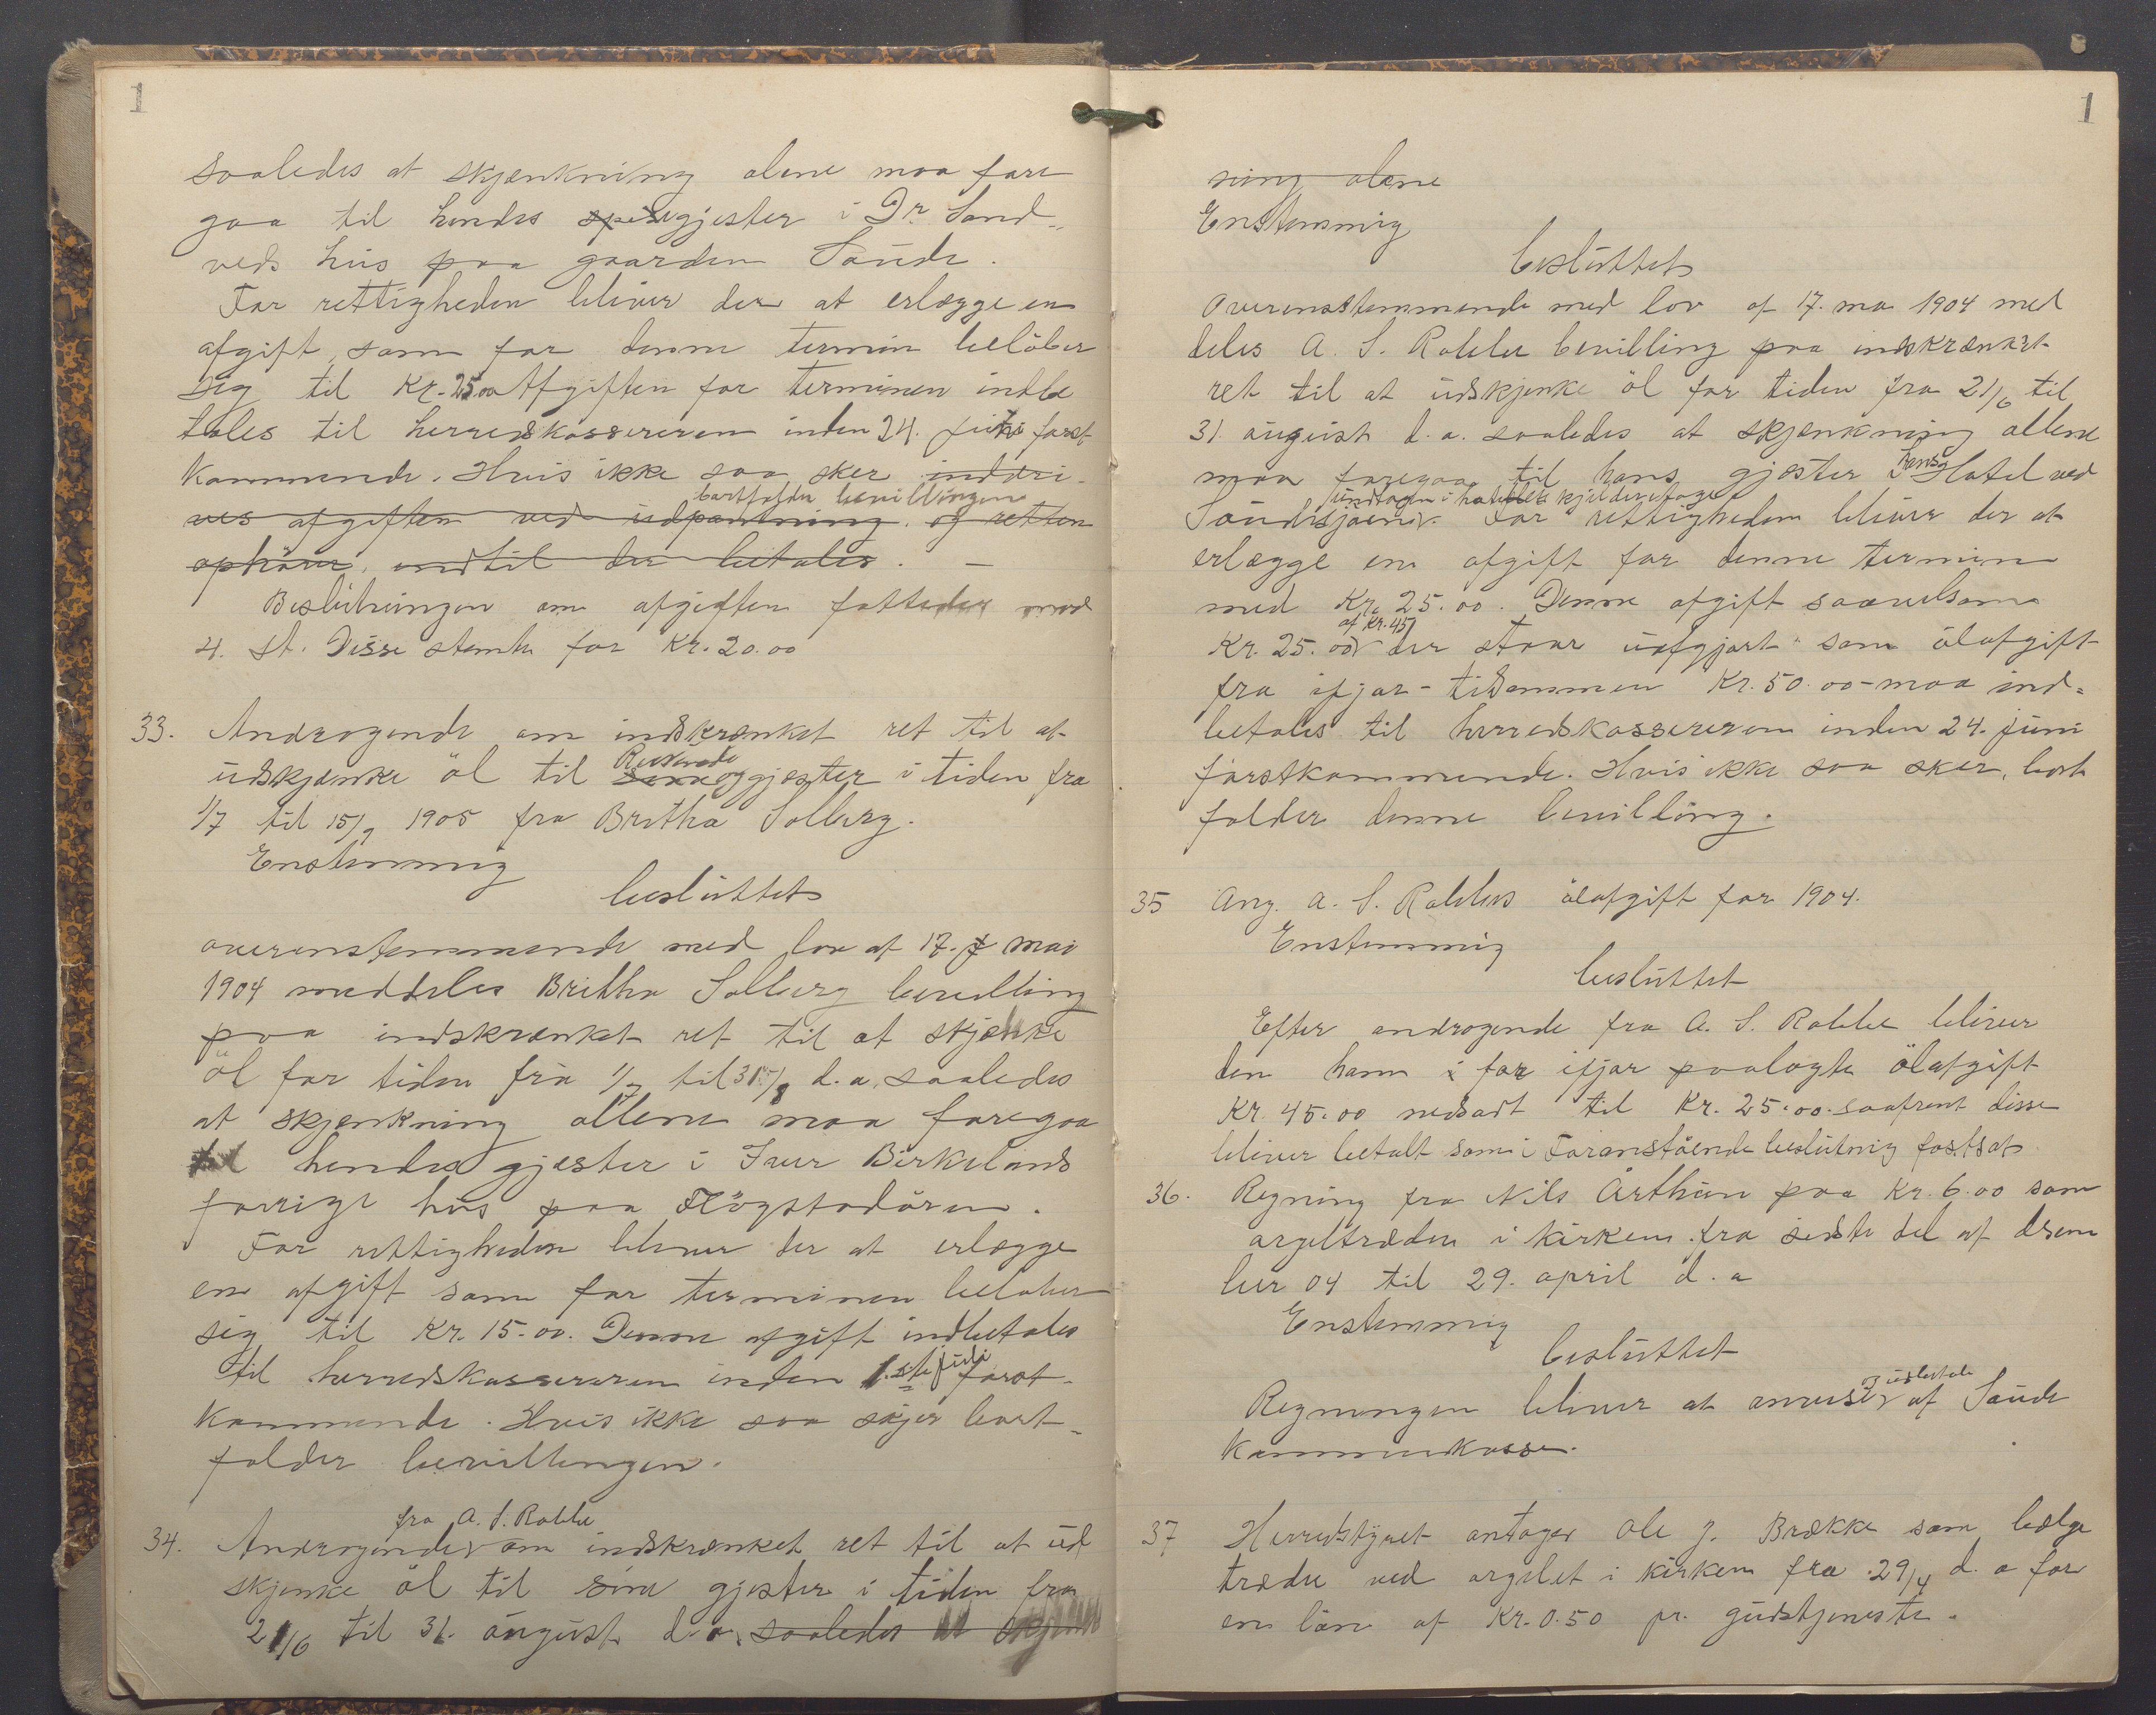 1
saaledes at skjænkning alene maa fore
gaa til hendes spisegjester i Dr. Sand-
veds hus paa gaarden Saude.
For rettigheden bliver der at erlægge en
afgift, som for denne termin belöber
sig til Kr. 25.00 Afgiften for terminen indbe
tales til herredskassereren inden 24. juni først
kommende. Hvis ikke saa sker inddri-
bortfalder bevillingen
ves afgiften ved udpantning og retten
ophörer indtil der betales. —
Beslutningen om afgiften fattedes mod
4. st. Disse stemte for Kr. 20.00
33. Andragende om indskrænket ret til at
Reisende
udskjænke öl til sine og gjester i tiden fra
1/7 til 15/9 1905 fra Britha Solberg.
Enstemmig
besluttet
overenstemmende med lov af 17. mai
1904 meddeles Britha Solberg bevilling
paa indskrænket ret til at skjænke
öl for tiden fra 1/7 til 31/8 d.a. saaledes
at skjænkning allene maa foregaa
til hendes gjester i Iver Birkelands
forrige hus paa Högstadören.
For rettigheden bliver der at erlægge
en afgift som for terminen belöber
sig til Kr. 15.00. Denne afgift indbetales
til herredskassereren inden 1.ste juli først-
kommende. Hvis ikke saa skjer bort-
falder bevillingen.
fra A. S. Rabbe
34. Andragende om indskrænket ret til at ud
skjenke öl til sine gjester i tiden fra
21/6 til 31. august d.a. saaledes at skjænk
1
ning alene
Enstemmig
besluttet
Overensstemmende med lov af 17. mai 1904 med
deles A. S. Rabbe bevilling paa indskrænket
ret til at udskjenke öl for tiden fra 21/6 til
31. august d.a. saaledes at skjænkning allene
maa foregaa til hans gjæster i hans Hotel ved
undtagen i hotellets kjelderetage
Saudesjøen. For rettigheden bliver der at
erlægge en afgift for denne termin
med Kr. 25.00. Denne afgift saavelsom
af Kr. 45
Kr. 25.00 der staar uafgjort som ölafgift
fra ifjor - tilsammen Kr. 50.00 - maa ind-
betales til herredskassereren inden 24. juni
førstkommende. Hvis ikke saa sker, bort
falder denne bevilling.
35 Ang. A. S. Rabbes ölafgift for 1904.
Enstemmig
besluttet
Efter andragende fra A. S. Rabbe bliver
den ham i for ifjor paalagte ölafgift
Kr. 45.00 nedsat til Kr. 25.00. saafremt disse
bliver betalt som i Foranstående beslutning fastsat
36. Regning fra Nils Årthun paa Kr. 6.00 som
orgeltræder i kirken fra sidste del af desem
ber 04 til 29. april d.a
Enstemmig
besluttet
og udbetale
Regningen bliver at anvise af Saude
Kommunekasse.
37 Herredstyret antager Ole J. Brække som bælge
træder ved orgelet i kirken fra 29/4 d.a for
en lön af Kr. 0.50 pr. gudstjeneste.